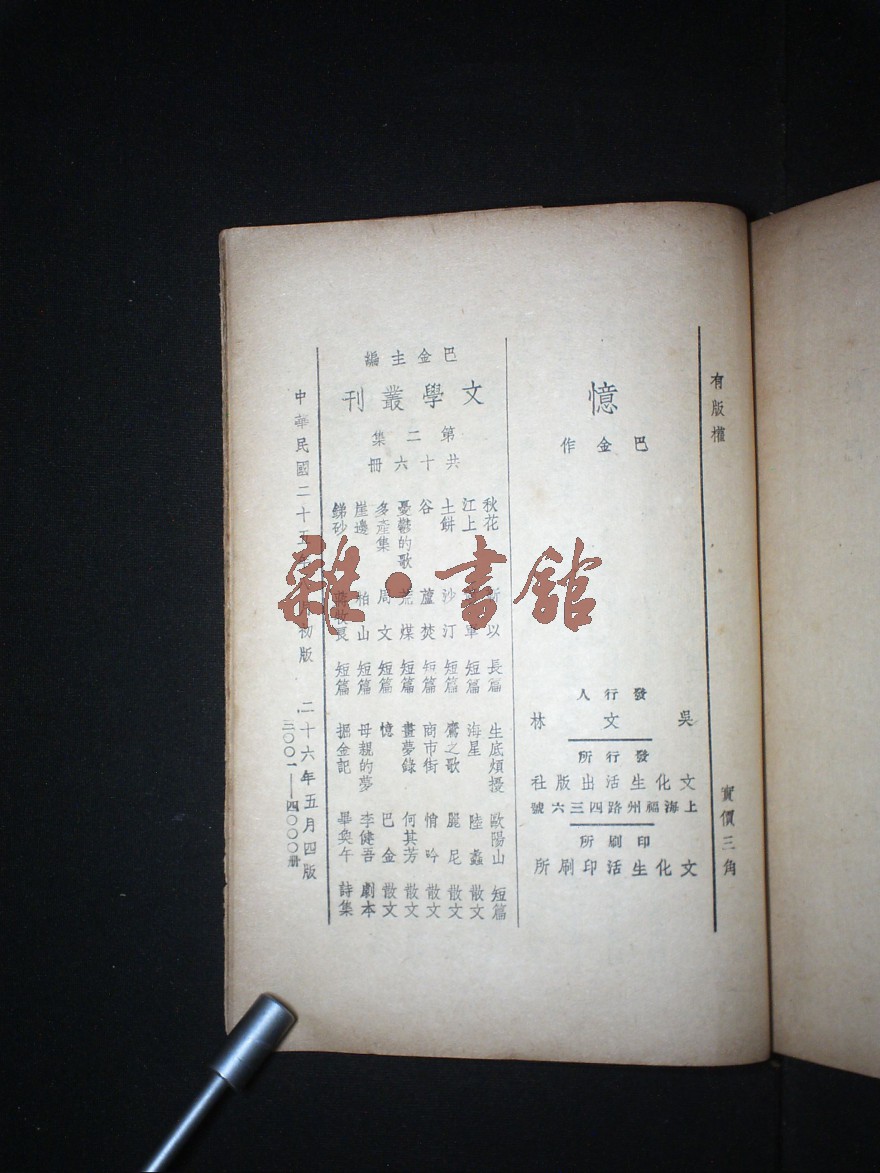 有版權 實價三角
憶
巴金作
發行人
吳文林
發行所
文化生活出版社
上海福州路四三六號
印刷所
文化生活印刷所
巴金主編
文學叢刊
第二集
共十六冊
秋花 靳以 長篇 生底煩擾 歐陽山 短篇
江上 軍 短篇 海星 陸蠡 散文
土餅 沙汀 短篇 鷹之歌 麗尼 散文
谷 蘆焚 短篇 商市街 悄吟 散文
憂鬱的歌 荒煤 短篇 畫夢錄 何其芳 散文
多產集 周文 短篇 憶 巴金 散文
崖邊 柏山 短篇 母親的夢 李健吾 劇本
銻砂 蔣牧良 短篇 掘金記 畢奐午 詩集
中華民國二十五年 月初版 二十六年五月四版
三〇〇一——四〇〇〇册
雜·書館